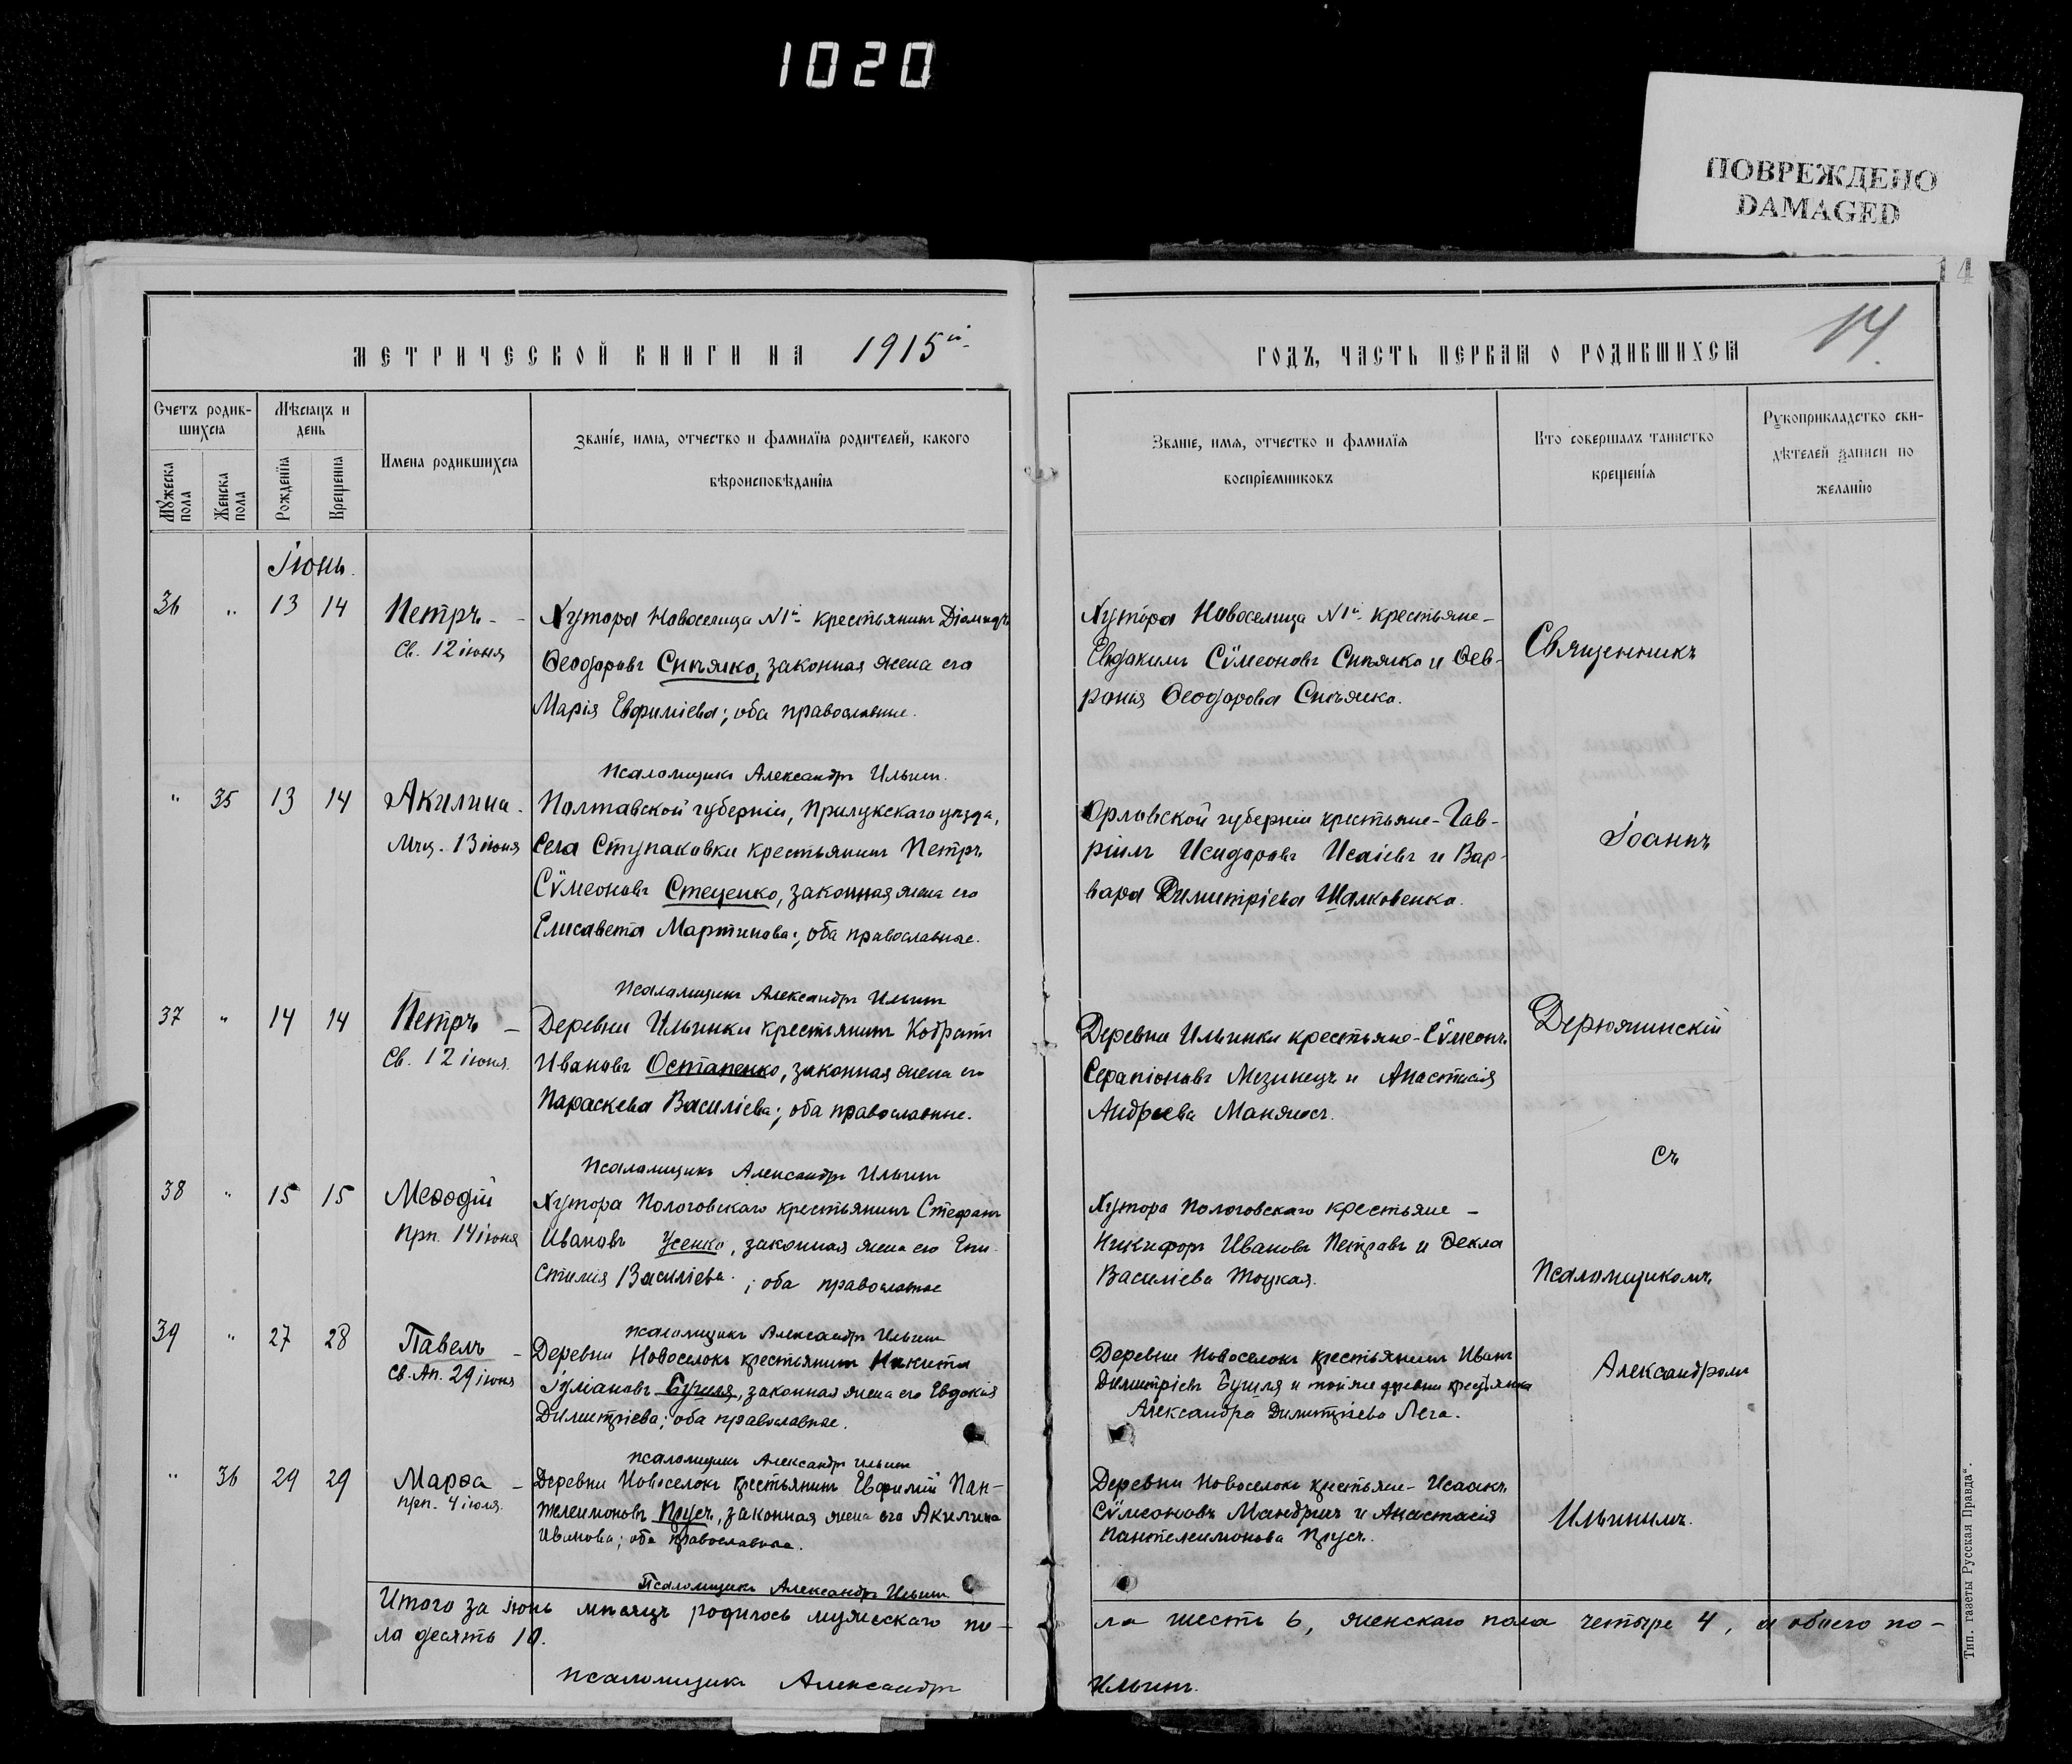 1020
ПОВРЕЖДЕНО
DAMAGED
14
14.
МЕТРИЧЕСКОЙ КНИГИ НА 1915й
ГОДЪ, ЧАСТЬ ПЕРВАЯ О РОДИВШИХСЯ
Счетъ родив-
шихся
Мужеска
пола
Женска
пола
Мѣсяцъ и
день
Рожденія
Крещенія
Имена родившихся
Званіе, имя, отчество и фамилія родителей, какого
вѣроисповѣданія
Званіе, имя, отчество и фамилія
воспріемниковъ
Кто совершалъ таинство
крещенія
Рукоприкладство сви-
дѣтелей записи по
желанію
Іюнь.
36 " 13 14 Петръ -
Св. 12 іюня
Хутора Новоселица №1й крестьянинъ Діомидъ
Ѳеодоровъ Сипяяко, законная жена его
Марія Евфиміева; оба православные.
Хутора Новоселица №1й крестьяне-
Евдокимъ Сѵмеоновъ и Ѳев-
ронія Ѳеодорова
Священникъ
Псаломщикъ Александръ Ильинъ.
" 35 13 14 Акилина -
Мчц. 13 іюня
Полтавской губерніи, Прилукскаго уѣзда,
Села Ступаковки крестьянинъ Петръ
Сѵмеоновъ Стеценко, законная жена его
Елисавета Мартинова; оба православные.
Орловской губерніи крестьяне - Гав-
ріилъ Исидоровъ Исаіевъ и Вар-
вара Димитріева Шалковенко.
Іоаннъ
Псаломщикъ Александръ Ильинъ
37 " 14 14 Петръ -
Св. 12 іюня.
Деревни Ильинки крестьянинъ Кодратъ
Ивановъ Остапенко, законная жена его
Параскева Василіева; оба православные.
Деревни Ильинки крестьяне - Сѵмеонъ
Серапіоновъ Мезинецъ и Анастасія
Андреева
Псаломщикъ Александръ Ильинъ
съ
38 " 15 15 Меѳодій
Прп. 14 іюня
Хутора Пологовскаго крестьянинъ Стефанъ
Ивановъ Усенко, законная жена его Епи-
стимія Василіева; оба православные
Хутора Пологовскаго крестьяне -
Никифоръ Ивановъ Петровъ и Ѳекла
Василіева Тоцкая.
Псаломщикомъ
Псаломщикъ Александръ Ильинъ
39 " 27 28 Павелъ -
Св. Ап. 29 іюня
Деревни Новоселокъ крестьянинъ Никита
Іуліановъ Бугиля, законная жена его Евдокія
Димитріева; оба православные.
Деревни Новоселокъ крестьянинъ Иванъ
Димитріевъ Бугиля и той же деревни крестьянка
Александра Димитріева Лега.
Александромъ
Псаломщикъ Александръ Ильинъ
" 36 29 29 Марѳа -
прп. 4 іюля.
Деревни Новоселокъ крестьянинъ Евфимій Пан-
телеимоновъ Прусъ, законная жена его Акилина
Иванова; оба православные.
Деревни Новоселокъ крестьяне - Исаакъ
Сѵмеоновъ Мандричъ и Анастасія
Пантелеимонова Прусъ.
Ильинымъ.
Псаломщикъ Александръ Ильинъ
Итого за іюнь мѣсяцъ родилось мужескаго по- ла шесть 6, женскаго пола четыре 4, а обоего по-
ла десять 10.
Псаломщикъ Александръ Ильинъ.
Тип. газеты „Русская Правда“.